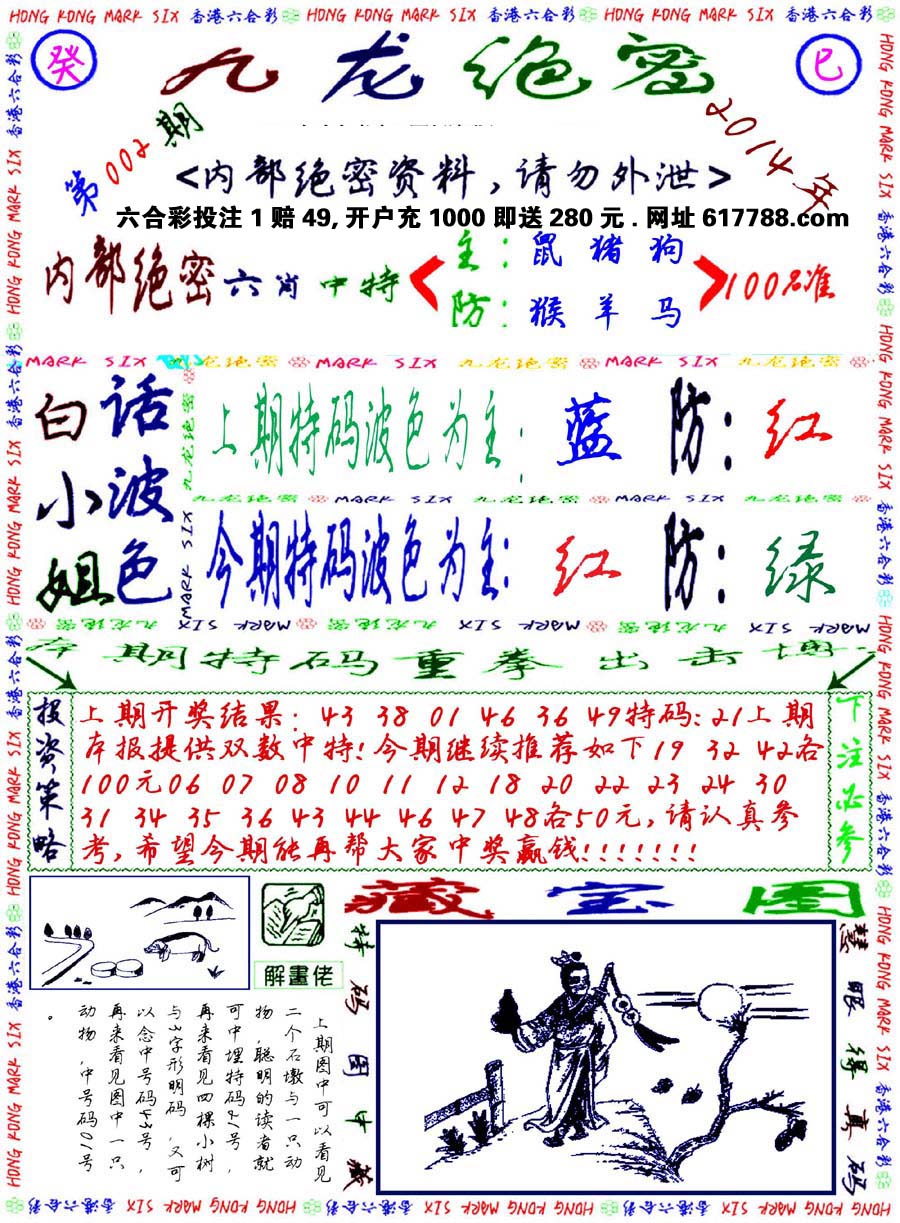 HONG KONG MARK SIX 香港六合彩 HONG KONG MARK SIX 香港六合彩 HONG KONG MARK SIX 香港六合彩
癸
九龙绝密
巳
第002期
2014年
<内部绝密资料,请勿外泄>
六合彩投注 1 赔 49, 开户充 1000 即送 280 元 . 网址 617788.com
内部绝密六肖中特
主:鼠猪狗
防:猴羊马
100%准
MARK SIX 九龙绝密 MARK SIX 九龙绝密 MARK SIX 九龙绝密
白小姐
话波色
上期特码波色为主: 蓝 防: 红
九龙绝密 MARK SIX 九龙绝密 MARK SIX 九龙绝密
今期特码波色为主: 红 防: 绿
本期特码重拳出击博
投资策略
上期开奖结果: 43 38 01 46 36 49特码:21上期
本报提供双数中特!今期继续推荐如下19 32 42各
100元06 07 08 10 11 12 18 20 22 23 24 30
31 34 35 36 43 44 46 47 48各50元,请认真参
考,希望今期能再帮大家中奖赢钱!!!!!!!
下注必参
解畫佬
藏宝图
特码图中藏
慧眼得真码
上期图中可以看见
二个石墩与一只动
物,聪明的读者就
可中埋特码21号,
再来看见四棵小树
与3字形明码,又可
以念中号码43号,
再来看见图中一只
动物,中号码01号
。